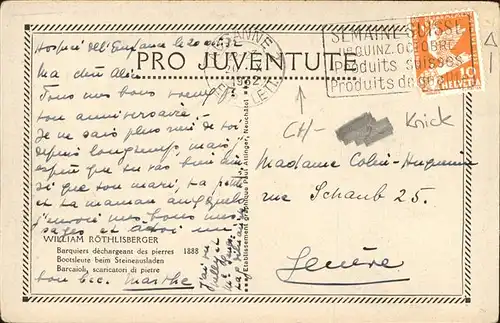 Hospice de l'Enfance le 20
LAUSANNE
1932
SEMAINE SUISSE
QUINZ. OCTOBRE
Produits suisses
Produits de
10
PRO JUVENTUTE
Ma chère Alice
Tous mes bons voeux p.
ton anniversaire.
Je ne sais plus rien de toi
depuis longtemps, mais
espère que tu vas bien
que ton mari, ta
et ta maman auxquels
j'envoie mes bons mes-
sages et à toi un
WILLIAM RÖTHLISBERGER
Barquiers déchargeant des pierres 1888
Bootsleute beim Steineausladen
Barcaioli, scaricatori di pietre
bon bec. Marthe
Etablissement graphique Paul Attinger, Neuchâtel
CH-
Knick
Madame Colin-Huguenin
rue Schaub 25.
Genève